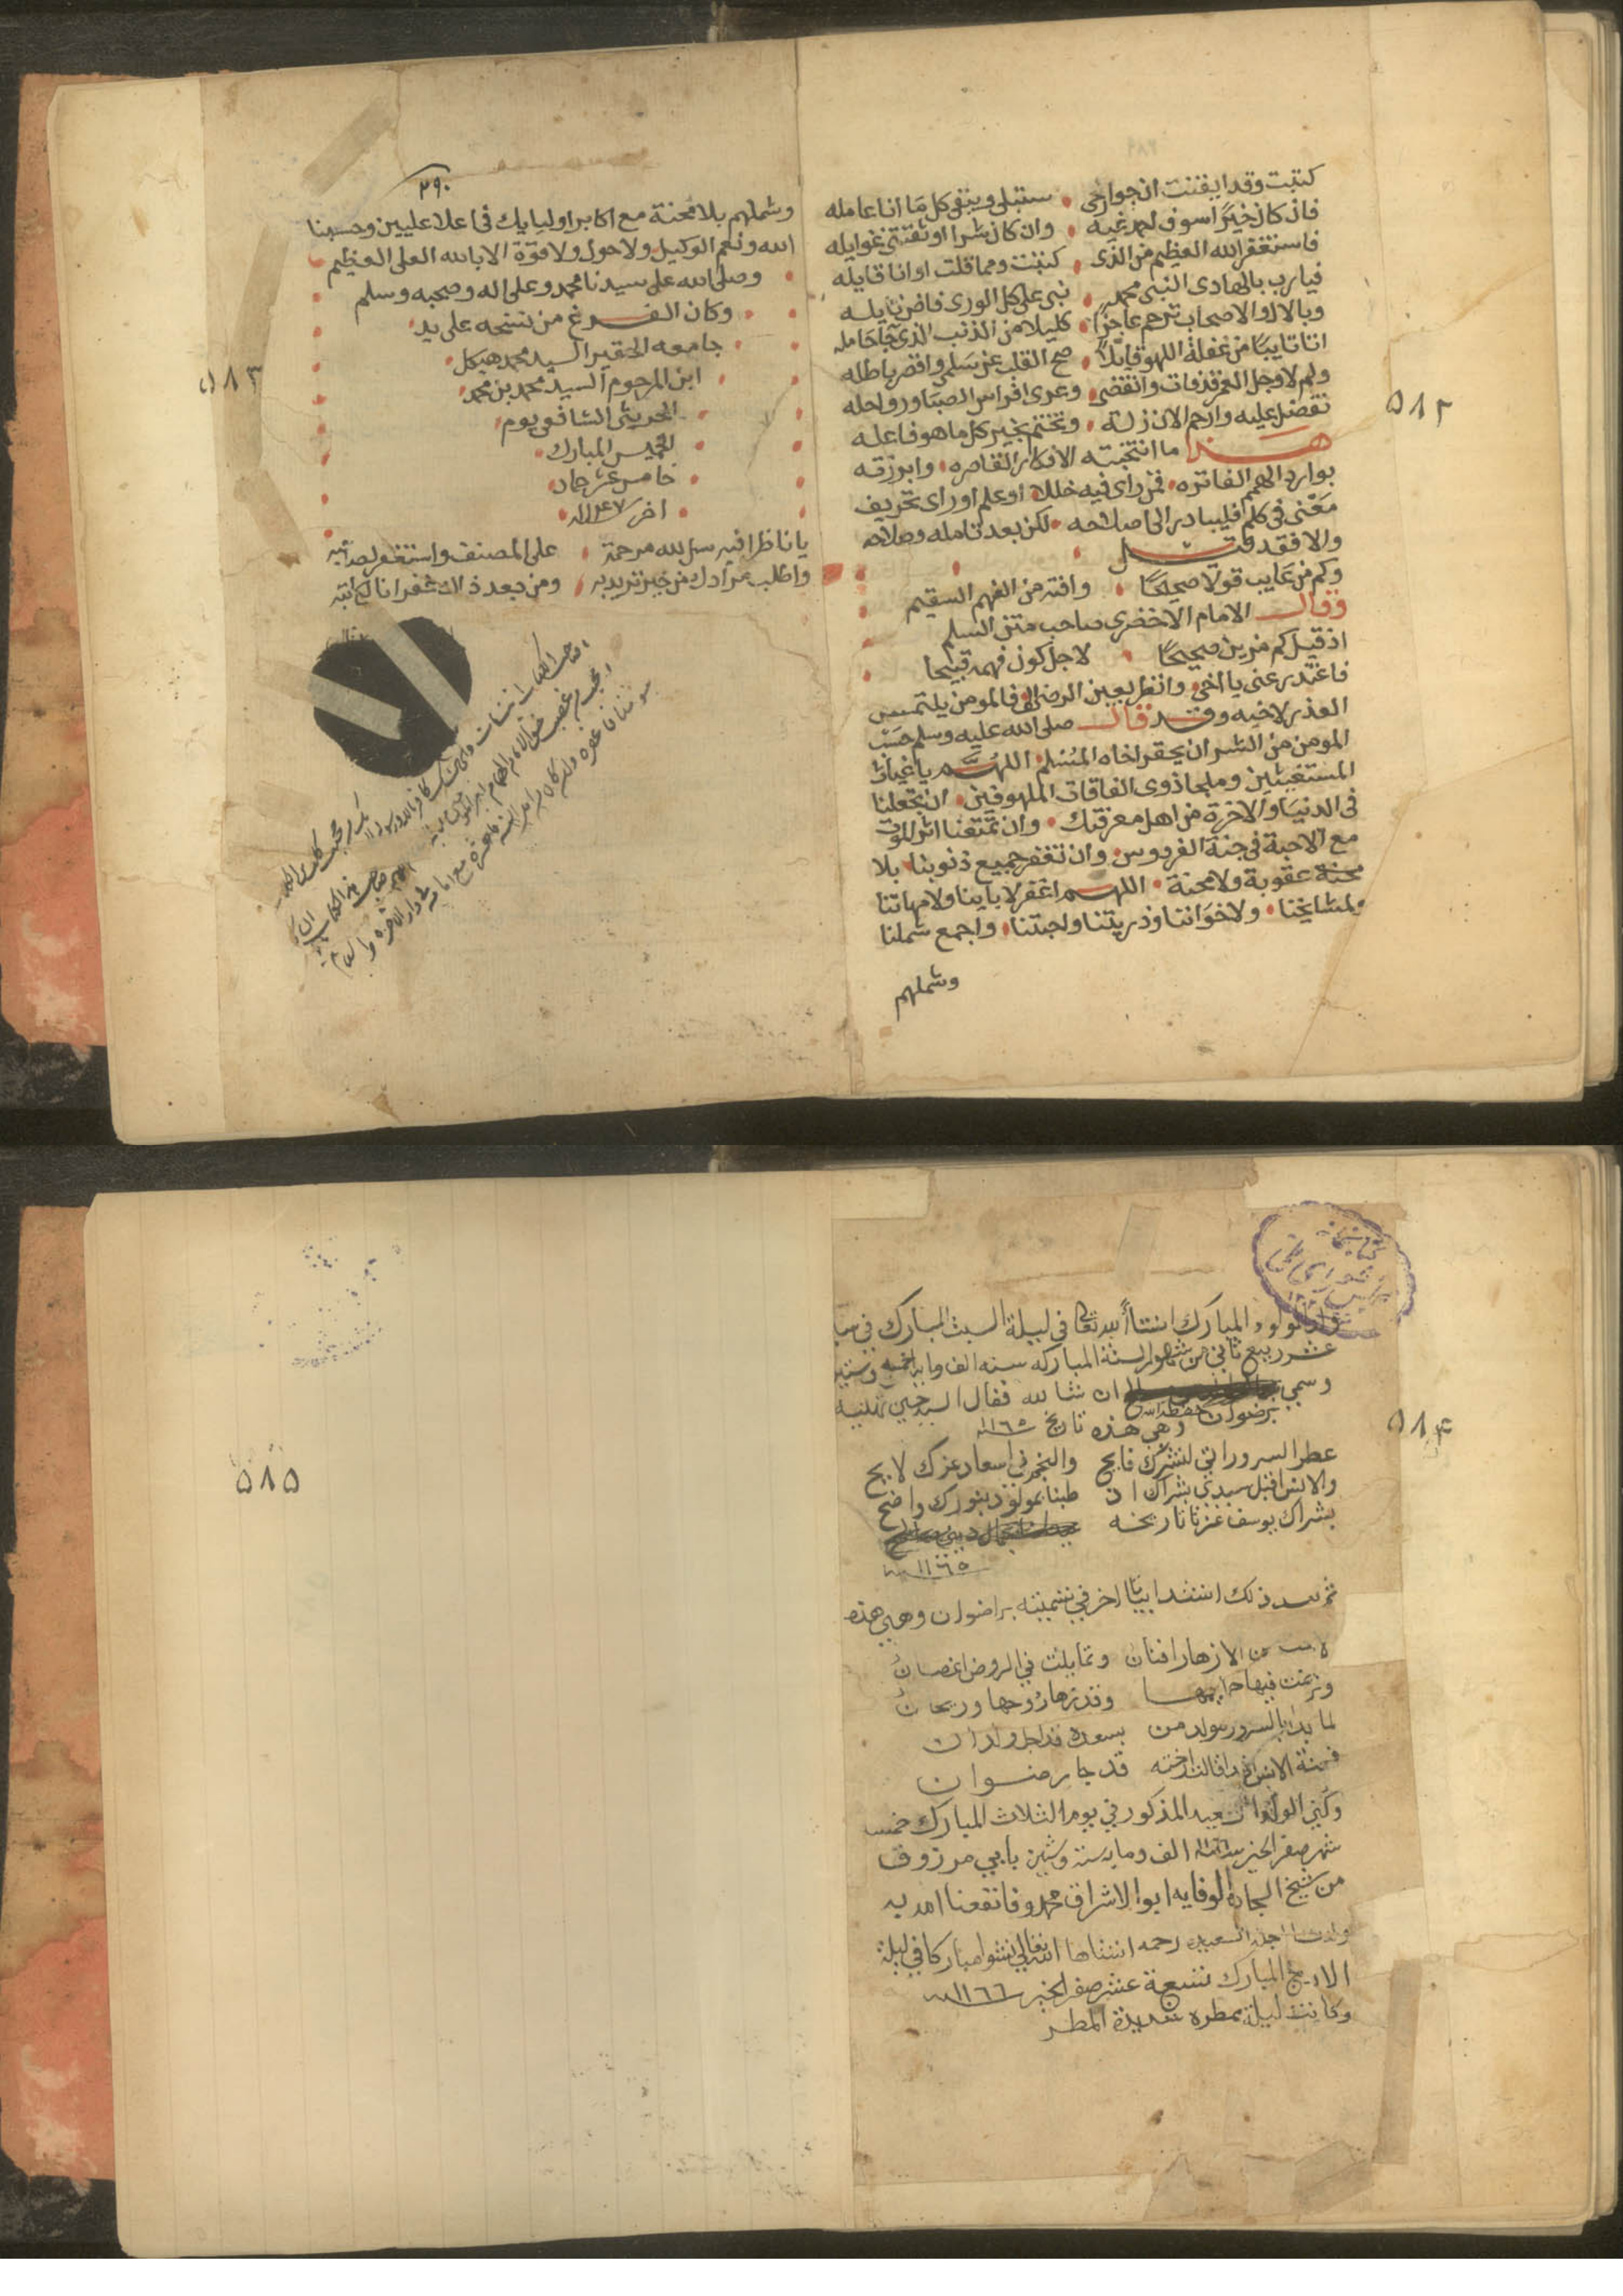 كتبت وقد ايقنت ان جوارحى ستبلى ويبقى كل ما انا عامله
فان كان خيرا سوف احمد غبه وان كان شرا اوثقتنى غوايله
فاستغفر الله العظيم من الذى كتبت ومما قلت او انا قايله
فيارب بالهادى النبى محمد نبى على كل الورى فاض نايله
وبالال والاصحاب ترحم عاجزا كليلا من الذنب الذى جا حامله
اتا تايبا من غفلة اللهو قايلا صح القلب عن سلمى واقصر باطله
ولم لا وجل العمر قد فات وانقضى وعرى افراس الصبا ورواحله
تفضل عليه وارحم الان زلته وتختم بخير كل ما هو فاعله
هذا ما انتخبته الافكار القاصره وابرزته
بوارد الهمم الفاتره فمن راى فيه خللا او علم او راى تحريف
معنى فى كلم فليبادر الى اصلاحه لكن بعد تامله وصلاحه
والا فقد قيل
وكم من عايب قولا صحيحا وافته من الفهم السقيم
وقال الامام الاخضرى صاحب متن السلم
اذ قيل كم مزيف صحيحا لاجل كون فهمه قبيحا
فاعتذر عنى يا اخى وانظر بعين الرضى فالمومن يلتمس
العذر لاخيه وقد قال صلى الله عليه وسلم حسب
المومن من الشر ان يحقر اخاه المسلم اللهم يا غياث
المستغيثين وملجا ذوى الفاقات الملهوفين ان تجعلنا
فى الدنيا والاخرة من اهل معرفتك وان تمتعنا اثر الموت
مع الاحبة فى جنة الفردوس وان تغفر جميع ذنوبنا بلا
محنة عقوبة ولا محنة اللهم اغفر لاباينا ولامهاتنا
ولمشايخنا ولاخواننا وذريتنا واحبتنا واجمع شملنا
وشملهم
٥٨٢
٢٩٠
وشملهم بلا محنة مع اكابر اوليايك فى اعلا عليين وحسبنا
الله ونعم الوكيل ولا حول ولا قوة الا بالله العلى العظيم
وصلى الله على سيدنا محمد وعلى اله وصحبه وسلم
وكان الفراغ من نسخه على يد
جامعه الحقير السيد محمد هيكل
ابن المرحوم السيد محمد بن محمد
الحريثى الشافعى يوم
الخميس المبارك
خامس عشر جماد
اخر ١١٤٧
يا ناظرا فيه سل لله مرحمة على المصنف واستغفر لصاحبه
واطلب مرادك من خير تريد به ومن بعد ذالك غفرانا لكاتبه
٥٨٣
ولد المولود المبارك انشا الله تعالى فى ليلة السبت المبارك فى
عشر ربيع ثانى من شهور السنة المباركه سنه الف ومايه خمسه وستين
وسمى ان شا لله فقال السيد حسين تهنية
برضوان حفظه الله وهى هذه تاريخ ١١٦٥
عطر السرور اتى لنشرك فايح والنجم فى اسعاد عزك لايح
والانس اقبل سيدى بشراك اذ طبنا بمولود بنورك واضح
بشراك يوسف عزنا تاريخه
١١٦٥
ثم بعد ذلك انشد ابياتا اخر فى تسميته برضوان وهى هذه
من الازهار افنان وتمايلت فى الروض اغصان
وترنمت فيها حمايمها وقد زها روحها وريحان
لما بدا بالسرور مولد من بسعده قد اجل ولدان
فجنة الانس ارخته قد جا رضوان
وكنى الولد السعيد المذكور فى يوم الثلاث المبارك خمسه
شهر صفر الخير سنة الف ومايه سته وستين بابى مرزوق
من شيخ السجاده الوفايه ابو الاشراق محمد وفا نفعنا الله به
وولدت السعيده رحمه انشاها الله تعالى نشوا مباركا فى ليلة
الاربع المبارك تسعة عشر صفر الخير ١١٦٦
وكانت ليلة ممطره شديدة المطر
٥٨٤
٥٨٥